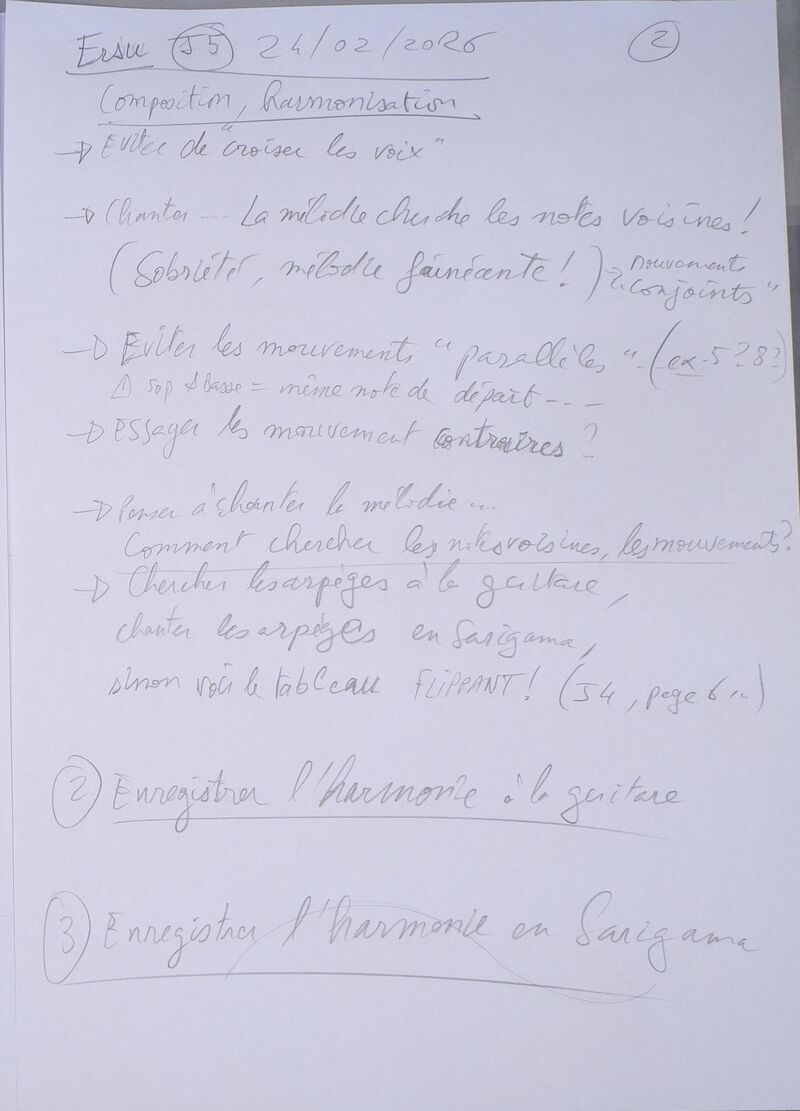 Ersu J5 24/02/2026 2
Composition, harmonisation
→ Eviter de "croiser les voix"
→ Chanter --- La mélodie cherche les notes voisines!
(Sobriété, mélodie fainéante!) → mouvements
"conjoints"
→ Eviter les mouvements "parallèles" - (ex. 5? 8?)
⚠ Sop & Basse = même note de départ - - -
→ Essayer les mouvement contraires?
→ Penser à chanter la mélodie...
Comment chercher les notes voisines, les mouvements?
→ Chercher les arpèges à la guitare,
chanter les arpèges en Sarigama,
sinon voir le tableau FLIPPANT! (J4, page 6 ..)
2 Enregistrer l'harmonie à la guitare
3 Enregistrer l'harmonie en Sarigama